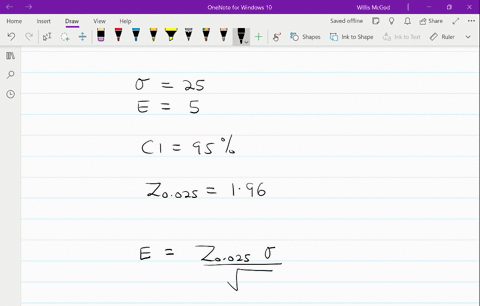 OneNote for Windows 10
Willis McGod
Home Insert Draw View Help Saved offline Share
Shapes Ink to Shape Ink to Text Ruler
σ = 25
E = 5
CI = 95%
Z0.025 = 1.96
E = Z0.025 σ
√